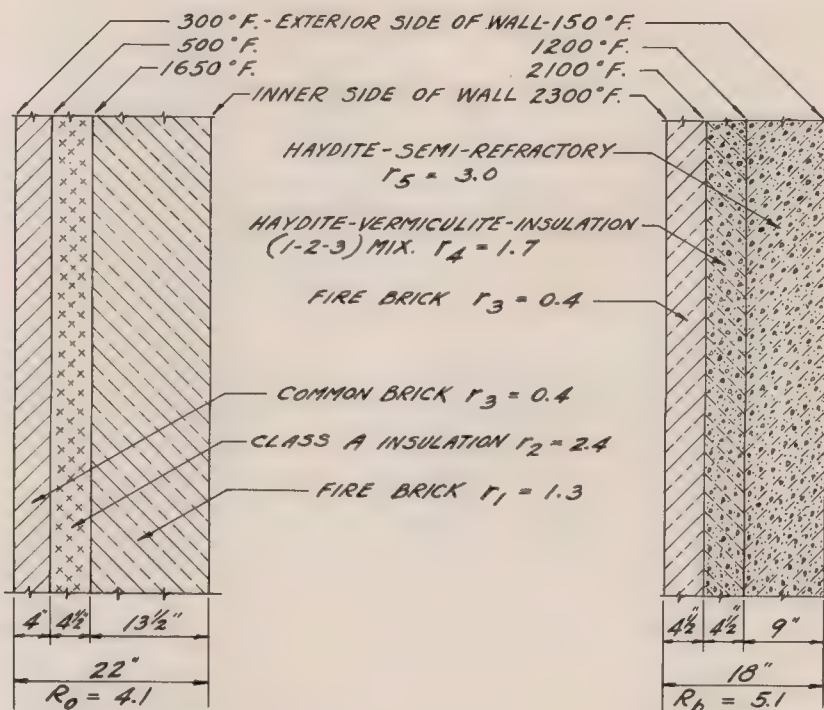 300°F.-EXTERIOR SIDE OF WALL-150°F.
500°F. 1200°F.
1650°F. 2100°F.
INNER SIDE OF WALL 2300°F.
HAYDITE-SEMI-REFRACTORY
r5 = 3.0
HAYDITE-VERMICULITE-INSULATION
(1-2-3) MIX. r4 = 1.7
FIRE BRICK r3 = 0.4
COMMON BRICK r3 = 0.4
CLASS A INSULATION r2 = 2.4
FIRE BRICK r1 = 1.3
4" 4½" 13½" 4½" 4½" 9"
22" 18"
Ro = 4.1 Rb = 5.1